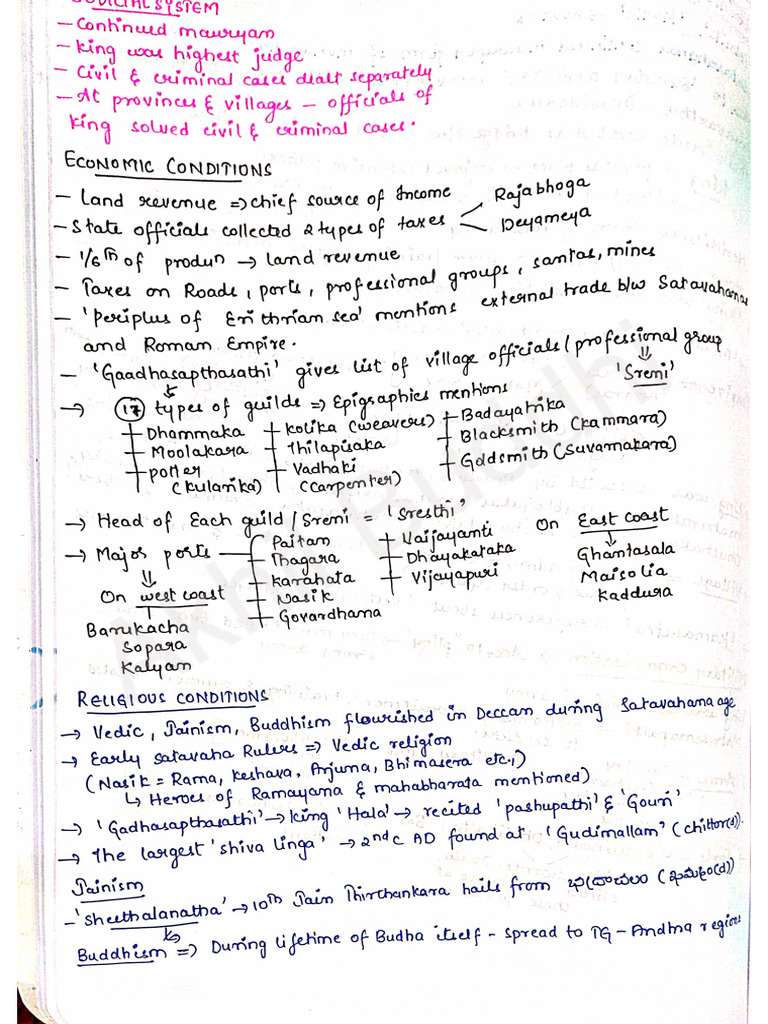 JUDICIAL SYSTEM
- Continued mauryan
- King was highest judge
- Civil & criminal cases dealt separately
- At provinces & villages - officials of
king solved civil & criminal cases.
ECONOMIC CONDITIONS
- Land revenue => chief source of Income
- State officials collected 2 types of taxes < Rajabhoga
Deyameya
- 1/6th of produn → land revenue
- Taxes on Roads, ports, professional groups, santas, mines
- 'Periplus of Erithrian sea' mentions external trade b/w Satavahanas
and Roman Empire.
- 'Gaadhasapthasathi' gives list of village officials / professional group
'Sreni'
→ 17 types of guilds => Epigraphies mentions
Dhammaka Kolika (weavers) Badayatrika
Moolakara Thilapisaka Blacksmith (Kammara)
potter (Kularika) Vadhaki (Carpenter) Goldsmith (Suvarnakara)
→ Head of Each guild / Sreni = 'Sresthi'
→ Major ports Paitan Vaijayanti On East coast
Thagara Dhayakataka Ghantasala
On west coast Karahata Vijayapuri Maisolia
Nasik Kaddura
Barukacha Govardhana
Sopara
Kalyan
RELIGIOUS CONDITIONS
→ Vedic, Jainism, Buddhism flourished in Deccan during Satavahana age
→ Early satavaha Rulers => Vedic religion
(Nasik = Rama, Keshava, Arjuna, Bhimasera etc.,)
↳ Heroes of Ramayana & mahabharata mentioned)
→ 'Gadhasapthasathi' → king 'Hala' → recited 'pashupathi' & 'Gouri'
→ The largest 'shiva linga' → 2nd C AD found at 'Gudimallam' (chittor(d)).
Jainism
- 'sheethalanatha' → 10th Jain Thirthankara hails from భద్రాచలం (ఖమ్మం(d))
Buddhism => During lifetime of Budha itself - spread to TG - Andhra regions